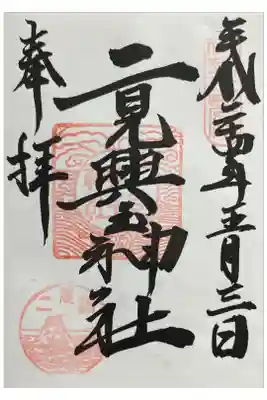 平成二十四年五月三日
二見興玉神社
奉拝